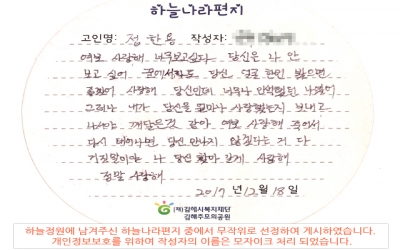 하늘나라편지
고인명: 정한용 작성자:
여보 사랑해 너무보고싶다. 당신은 나 안
보고 싶어 꿈에서라도 당신 얼굴 한번 봤으면
좋겠어 사랑해 당신인데 너무나 안익했던 나였어
그러나 내가 당신을 얼마나 사랑했는지 보내고
나서야 깨달은것 같아 여보 사랑해 죽어서
다시 태어나면 당신 만나지 않겠다는 거 다
거짓말이야 나 당신 찾아 갈게 사랑해
정말 사랑해
2017년 12월 18일
(재)김해시복지재단
김해추모의공원
하늘정원에 남겨주신 하늘나라편지 중에서 무작위로 선정하여 게시하였습니다.
개인정보보호를 위하여 작성자의 이름은 모자이크 처리 되었습니다.